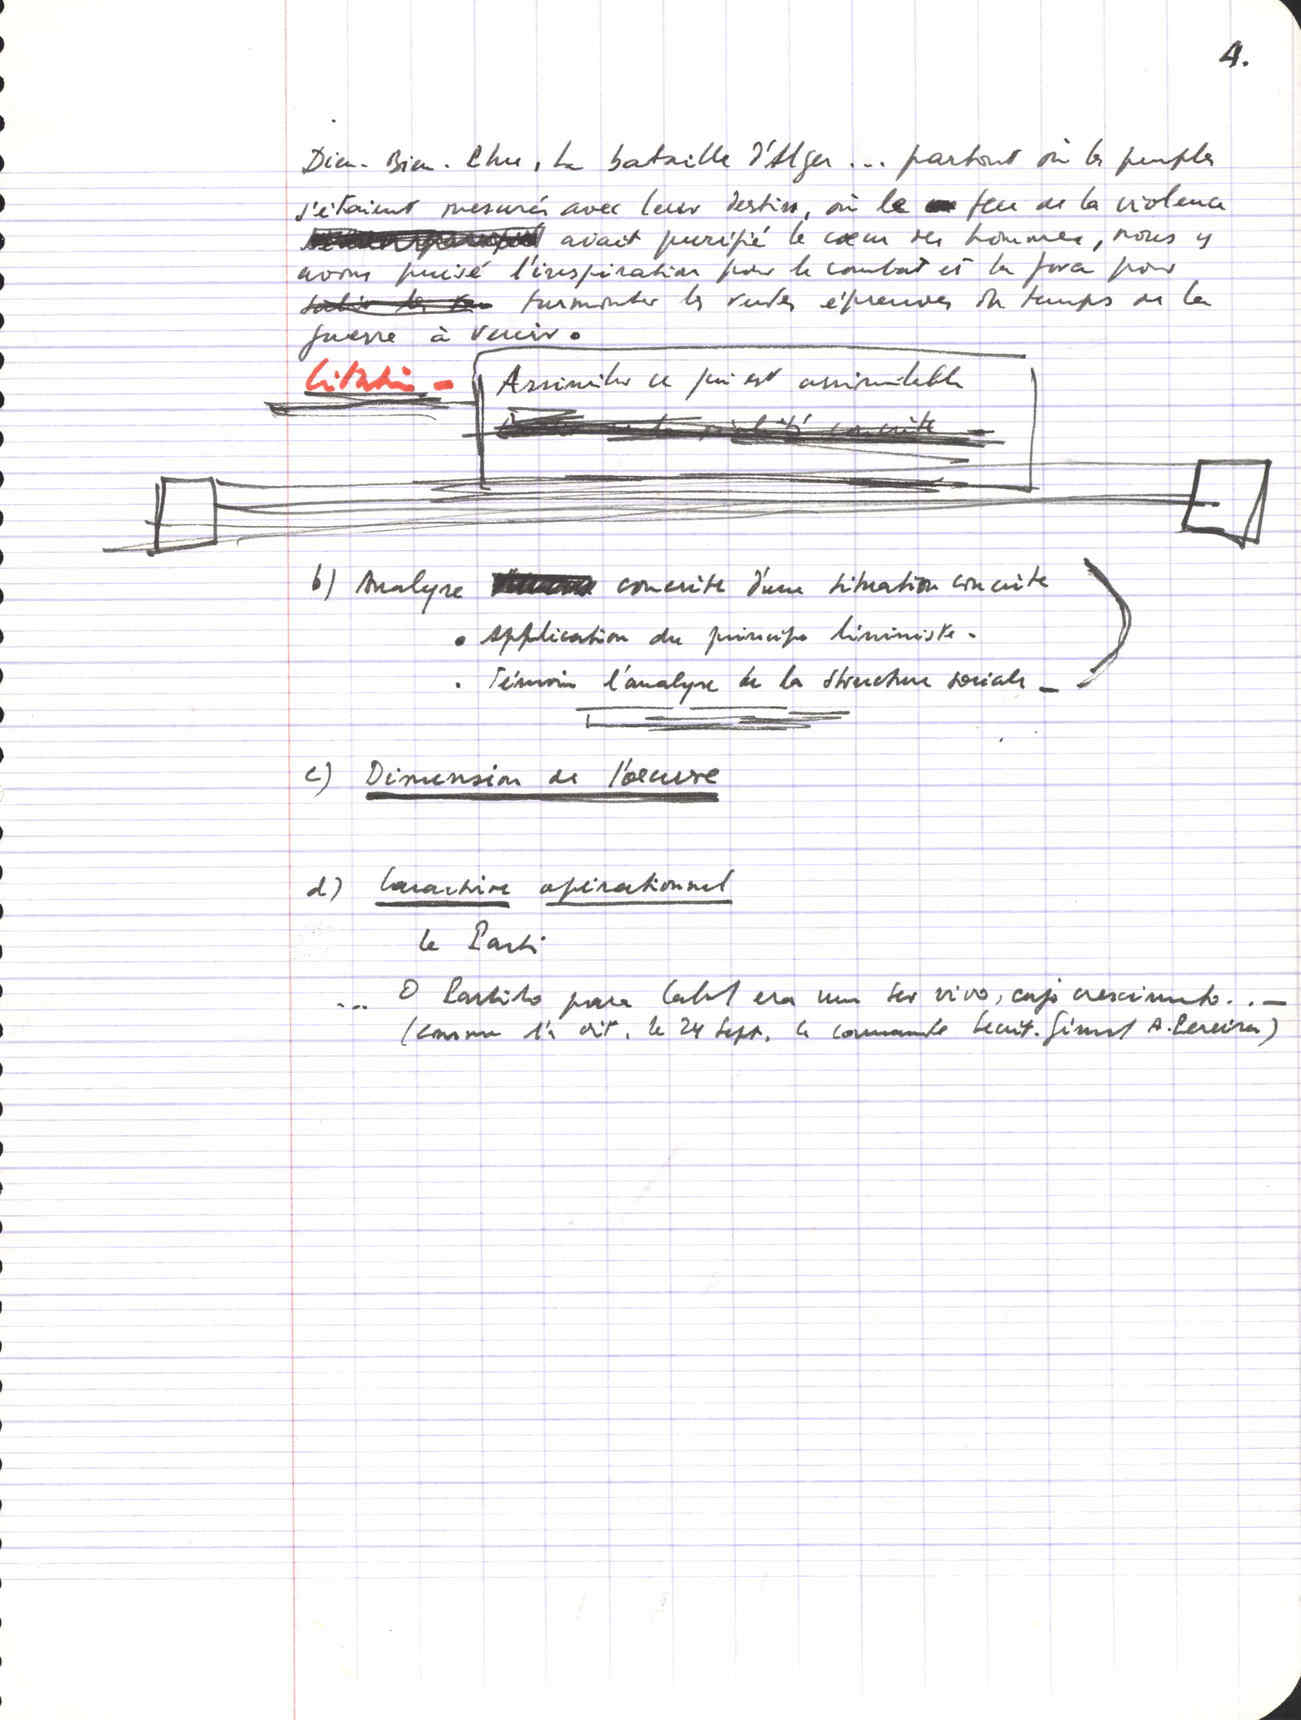 4.
Dien-Bien-Phu, la bataille d'Alger ... partout où les peuples
s'étaient mesurés avec leur destin, où le feu de la violence
avait purifié le cœur des hommes, nous y
avons puisé l'inspiration pour le combat et la force pour
surmonter les rudes épreuves du temps de la
guerre à venir.
Citation -
Assimiler ce qui est assimilable
b) Analyse concrète d'une situation concrète
• Application du principe léniniste.
. Témoin l'analyse de la structure sociale -
c) Dimension de l'œuvre
d) Caractère opérationnel
le Parti
... O Partido para Cabral era um ser vivo, cujo crescimento...-
(comme l'a dit, le 24 Sept, le commande Secrét. Général A. Pereira)